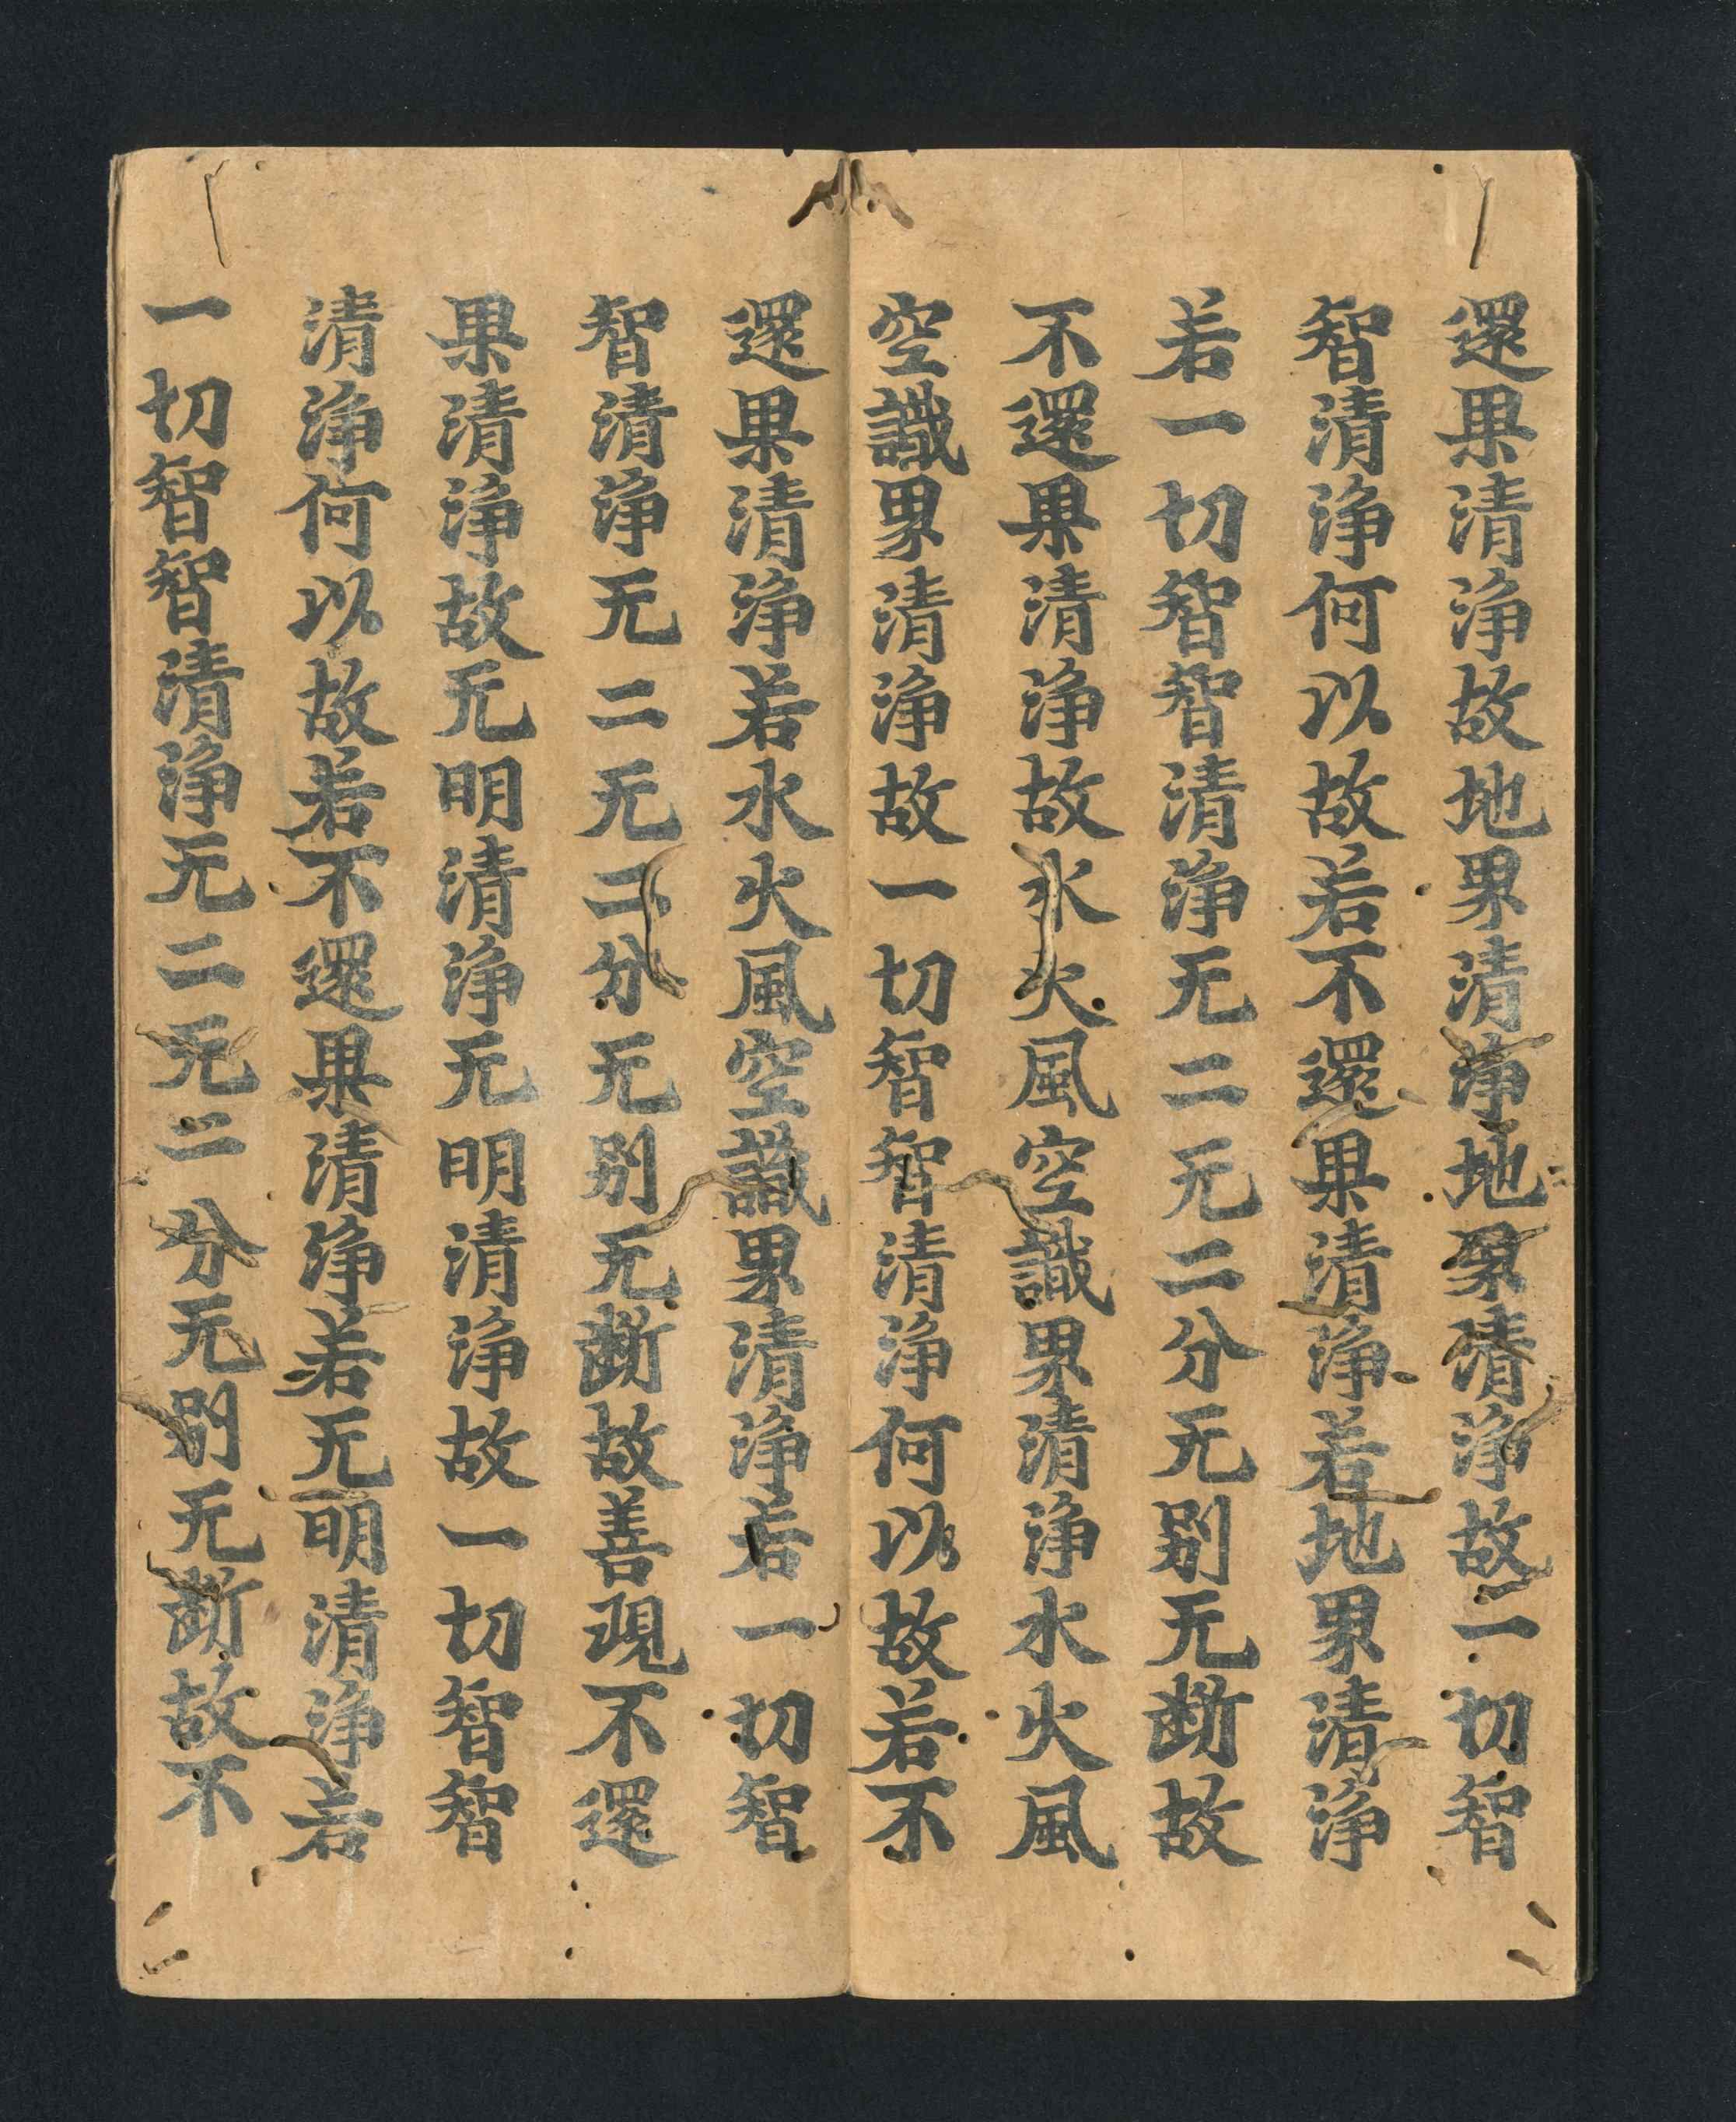 還果清淨故地界清淨地界清淨故一切智
智清淨何以故若不還果清淨若地界清淨
若一切智智清淨无二无二分无别无断故
不還果清淨故水火風空識界清淨水火風
空識界清淨故一切智智清淨何以故若不
還果清淨若水火風空識界清淨若一切智
智清淨无二无二分无别无断故善現不還
果清淨故无明清淨无明清淨故一切智智
清淨何以故若不還果清淨若无明清淨若
一切智智清淨无二无二分无别无断故不